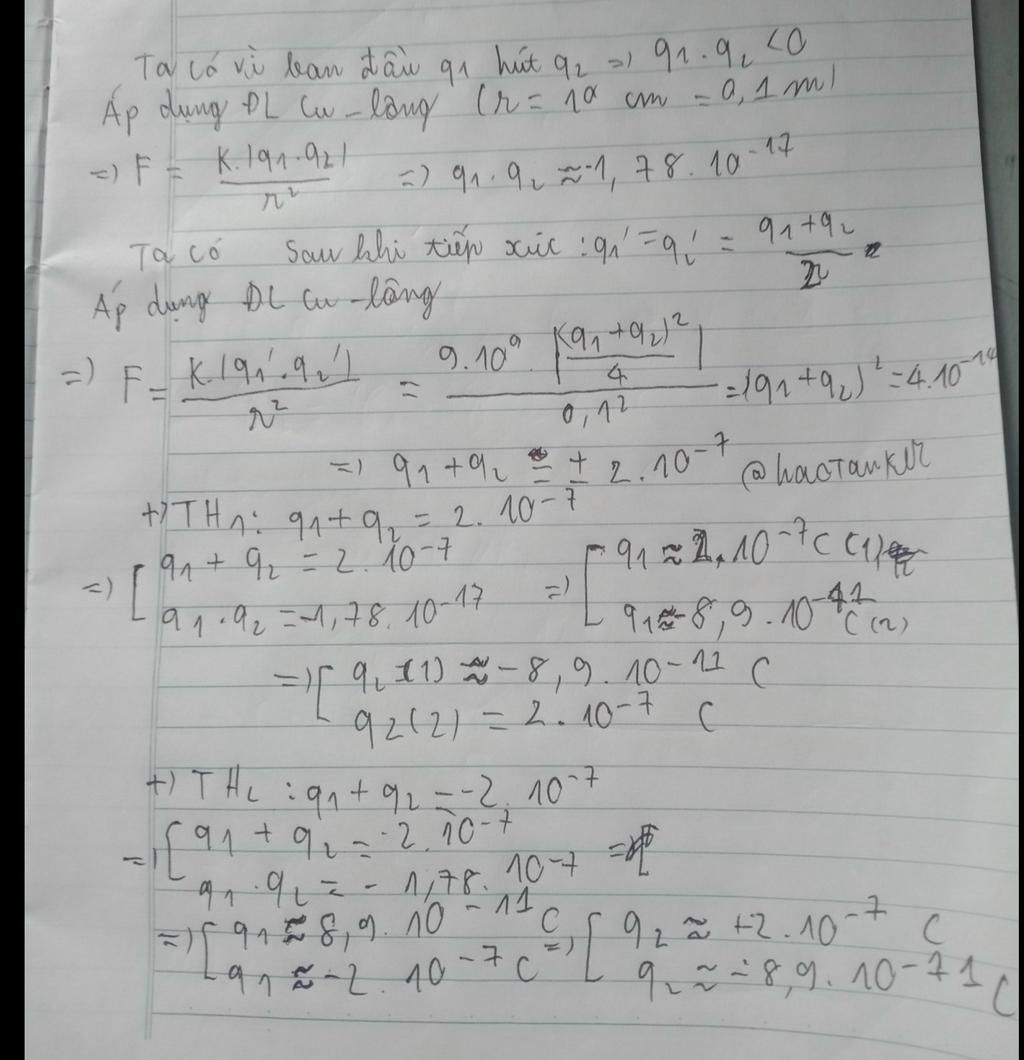 Ta có vì ban đầu q1 hút q2 => q1.q2 <0
Áp dụng ĐL Cu-lông (r = 10 cm = 0,1 m)
=> F = K.|q1.q2| / r² => q1.q2 ≈ -1,78.10^-17
Ta có sau khi tiếp xúc : q1' = q2' = (q1+q2) / 2
Áp dụng ĐL Cu-lông
=> F = K.|q1'.q2'| / r² = 9.10^9 . |(q1+q2)² / 4| / 0,1² = (q1+q2)² = 4.10^-14
=> q1+q2 = ± 2.10^-7 @haoTanker
+) TH1: q1+q2 = 2.10^-7
=> [ q1 + q2 = 2.10^-7 => [ q1 ≈ 2.10^-7 C (1)
q1.q2 = -1,78.10^-17 q1 ≈ -8,9.10^-11 C (2)
=> [ q2 (1) ≈ -8,9.10^-11 C
q2 (2) = 2.10^-7 C
+) TH2 : q1 + q2 = -2.10^-7
=> [ q1 + q2 = -2.10^-7
q1.q2 = - 1,78.10^-7 =>
=> [ q1 ≈ 8,9.10^-11 C => [ q2 ≈ +2.10^-7 C
q1 ≈ -2.10^-7 C q2 ≈ -8,9.10^-71 C